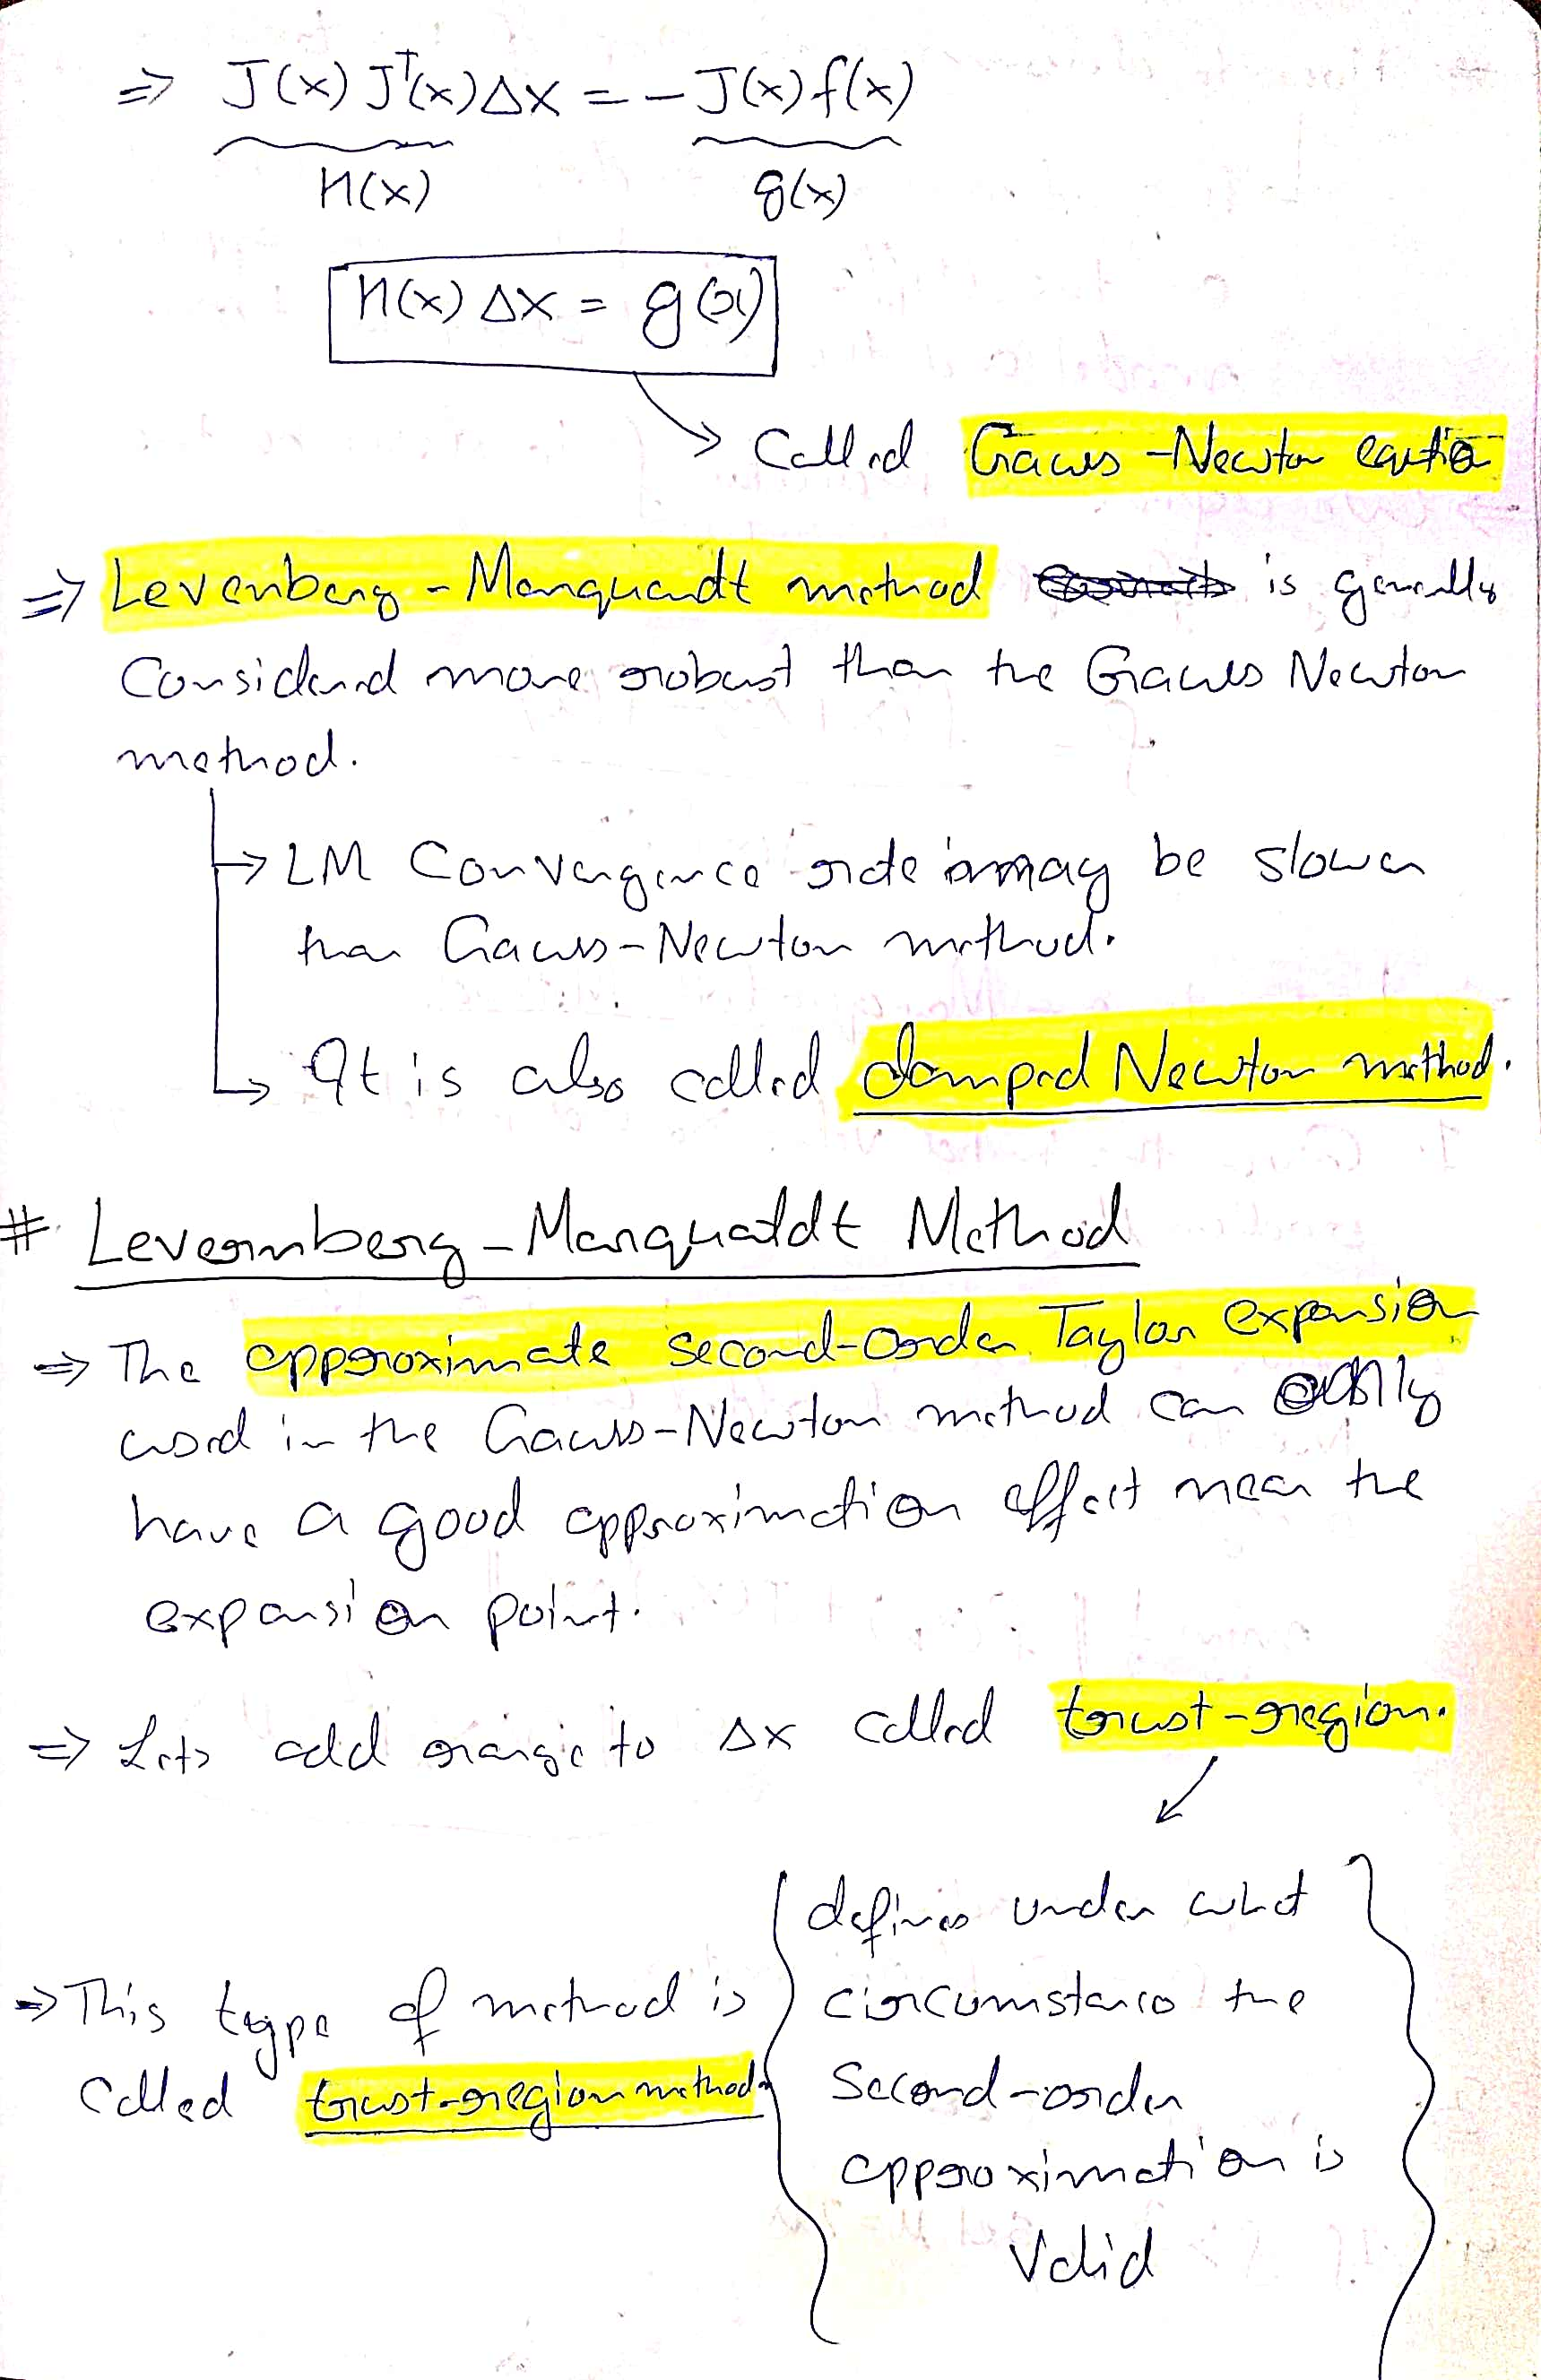 ⇒ J(x) Jᵀ(x) Δx = - J(x) f(x)
H(x) g(x)
H(x) Δx = g(x)
→ Called Gauss-Newton eqution
⇒ Levenberg-Marquardt method is generally
Considered more robust than the Gauss Newton
method.
→ LM Convergence rate may be slower
than Gauss-Newton method.
↳ It is also called damped Newton method.
# Levernberg-Marqualdt Method
⇒ The approximate second-order Taylor expansion
used in the Gauss-Newton method can only
have a good approximation effect near the
expansion point.
⇒ Lets add range to Δx called trust-region.
defines under what
circumstance the
Second-order
approximation is
Valid
⇒ This type of method is
called trust-region method.